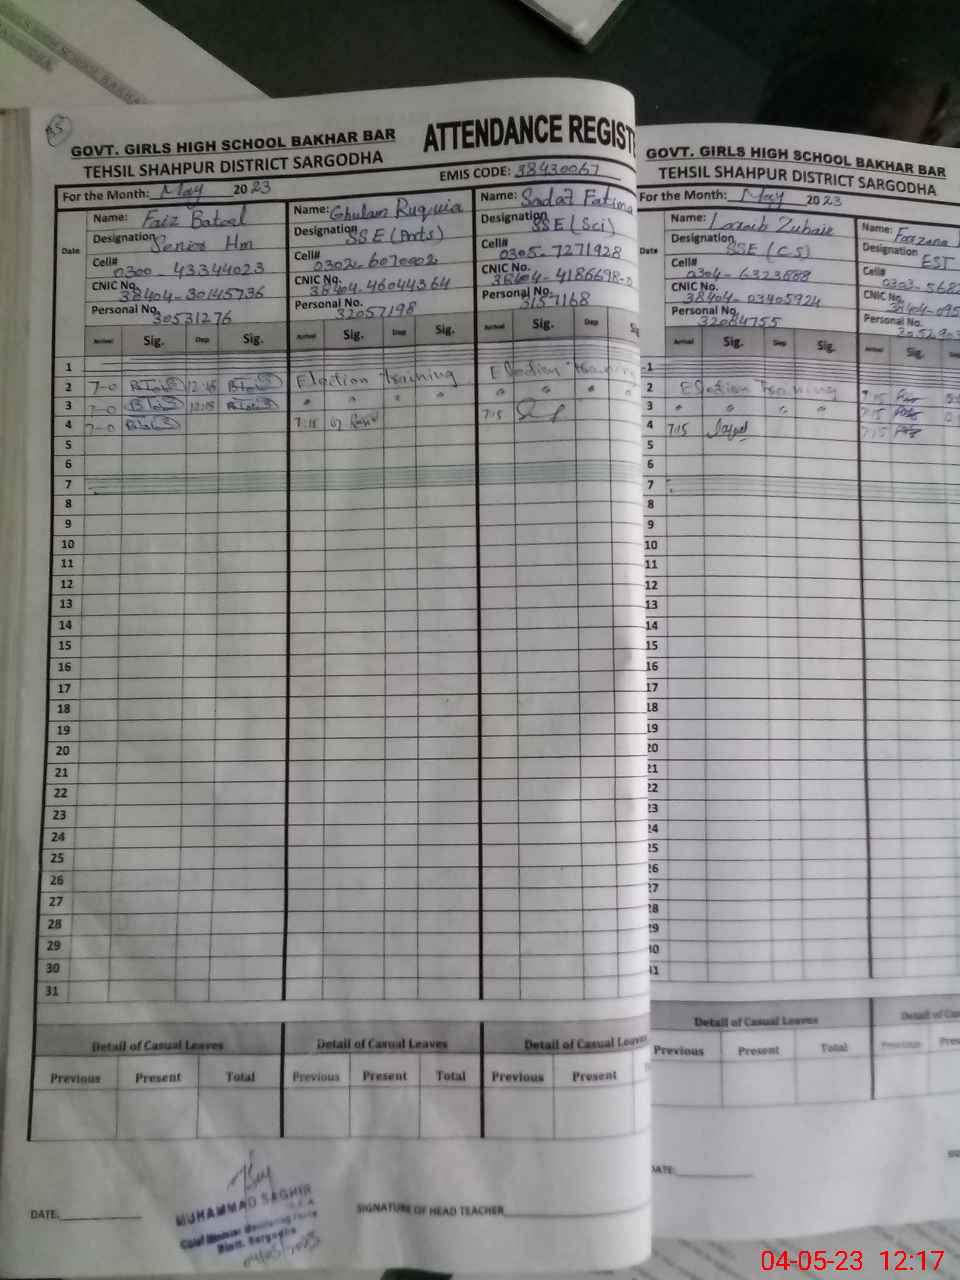 GOVT. GIRLS HIGH SCHOOL BAKHAR BAR
ATTENDANCE REGIST
TEHSIL SHAHPUR DISTRICT SARGODHA
EMIS CODE: 38430067
For the Month: May 2023
Date
Name: Faiz Batool
Designation Senior Hm
Cell# 0300-43344023
CNIC No. 38404-30145736
Personal No. 30531276
Name: Ghulam Ruquia
Designation SSE (Arts)
Cell# 0302-6070002
CNIC No. 38404-46044364
Personal No. 32057198
Name: Sadaf Fatima
Designation SSE (Sci)
Cell# 0305-7271928
CNIC No. 38404-4186698-0
Personal No. 3157168
Arrival Sig. Dep Sig. Arrival Sig. Dep Sig. Arrival Sig. Dep Sig
1
2 7-0 12:15 Election Training Election Training
3 7-0 12:15 " " " " " " "
4 7-0 7:15 7:15
5
6
7
8
9
10
11
12
13
14
15
16
17
18
19
20
21
22
23
24
25
26
27
28
29
30
31
Detail of Casual Leaves Detail of Casual Leaves Detail of Casual Leaves
Previous Present Total Previous Present Total Previous Present
DATE:
MUHAMMAD SAGHIR
Distt. Sargodha
04/05/2023
SIGNATURE OF HEAD TEACHER
GOVT. GIRLS HIGH SCHOOL BAKHAR BAR
TEHSIL SHAHPUR DISTRICT SARGODHA
For the Month: May 2023
Date
Name: Laraib Zubair
Designation SSE (CS)
Cell# 0304-6323888
CNIC No. 38404-03405924
Personal No. 32084755
Name: Farzana
Designation EST
Cell# 0303-5682
CNIC No. 38404-095
Personal No.
Arrival Sig. Dep Sig. Arrival Sig.
1
2 Election Training 7:15
3 " " " " 7:15
4 7:15 7:15
5
6
7
8
9
10
11
12
13
14
15
16
17
18
19
20
21
22
23
24
25
26
27
28
29
30
31
Detail of Casual Leaves Detail of Cas
Previous Present Total Previous Pres
DATE:
04-05-23 12:17